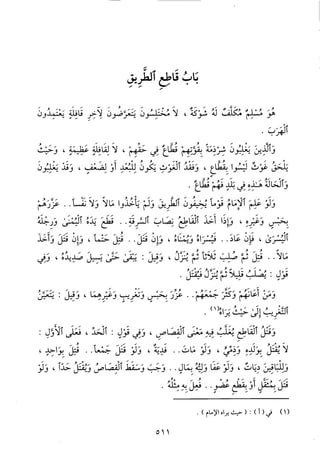 بَابُ قَاطِعِ الطَّرِيقِ
هُوَ مُسْلِمٌ مُكَلَّفٌ لَهُ شَوْكَةٌ ، لَا مُخْتَلِسُونَ يَتَعَرَّضُونَ لِآخِرِ قَافِلَةٍ يَعْتَمِدُونَ
الْهَرَبَ .
وَالَّذِينَ يَغْلِبُونَ شِرْذِمَةً بِقُوَّتِهِمْ قُطَّاعٌ فِي حَقِّهِمْ ، لَا لِقَافِلَةٍ عَظِيمَةٍ ، وَحَيْثُ
يَلْحَقُ غَوْثٌ لَيْسُوا بِقُطَّاعٍ ، وَفَقْدُ الْغَوْثِ يَكُونُ لِلْبُعْدِ أَوْ لِضَعْفٍ ، وَقَدْ يَغْلِبُونَ
وَالْحَالَةُ هَذِهِ فِي بَلَدٍ فَهُمْ قُطَّاعٌ .
وَلَوْ عَلِمَ الْإِمَامُ قَوْماً يُخِيفُونَ الطَّرِيقَ وَلَمْ يَأْخُذُوا مَالاً وَلَا نَفْساً .. عَزَّرَهُمْ
بِحَبْسٍ وَغَيْرِهِ ، وَإِذَا أَخَذَ الْقَاطِعُ نِصَابَ السَّرِقَةِ .. قَطَعَ يَدَهُ الْيُمْنَى وَرِجْلَهُ
الْيُسْرَى ، فَإِنْ عَادَ .. فَيُسْرَاهُ وَيُمْنَاهُ ، وَإِنْ قَتَلَ .. قُتِلَ حَتْماً ، وَإِنْ قَتَلَ وَأَخَذَ
مَالاً .. قُتِلَ ثُمَّ صُلِبَ ثَلَاثاً ثُمَّ يُنْزَلُ ، وَقِيلَ : يَبْقَى حَتَّى يَسِيلَ صَدِيدُهُ ، وَفِي
قَوْلٍ : يُصْلَبُ قَلِيلاً ثُمَّ يُنْزَلُ فَيُقْتَلُ .
وَمَنْ أَعَانَهُمْ وَكَثَّرَ جَمْعَهُمْ .. عُزِّرَ بِحَبْسٍ وَتَغْرِيبٍ وَغَيْرِهِمَا ، وَقِيلَ : يَتَعَيَّنُ
التَّغْرِيبُ إِلَى حَيْثُ يَرَاهُ(١) .
وَقَتْلُ الْقَاطِعِ يُغَلَّبُ فِيهِ مَعْنَى الْقِصَاصِ ، وَفِي قَوْلٍ : الْحَدُّ ، فَعَلَى الْأَوَّلِ :
لَا يُقْتَلُ بِوَلَدِهِ وَذِمِّيٍّ ، وَلَوْ مَاتَ .. فَدِيَةٌ ، وَلَوْ قَتَلَ جَمْعاً .. قُتِلَ بِوَاحِدٍ ،
وَلِلْبَاقِينَ دِيَاتٌ ، وَلَوْ عَفَا وَلِيُّهُ بِمَالٍ .. وَجَبَ وَسَقَطَ الْقِصَاصُ وَيُقْتَلُ حَدّاً ، وَلَوْ
قَتَلَ بِمُثَقَّلٍ أَوْ بِقَطْعِ عُضْوٍ .. فُعِلَ بِهِ مِثْلُهُ .
(١) في (أ) : ( حيث يراه الإمام ) .
٥١١